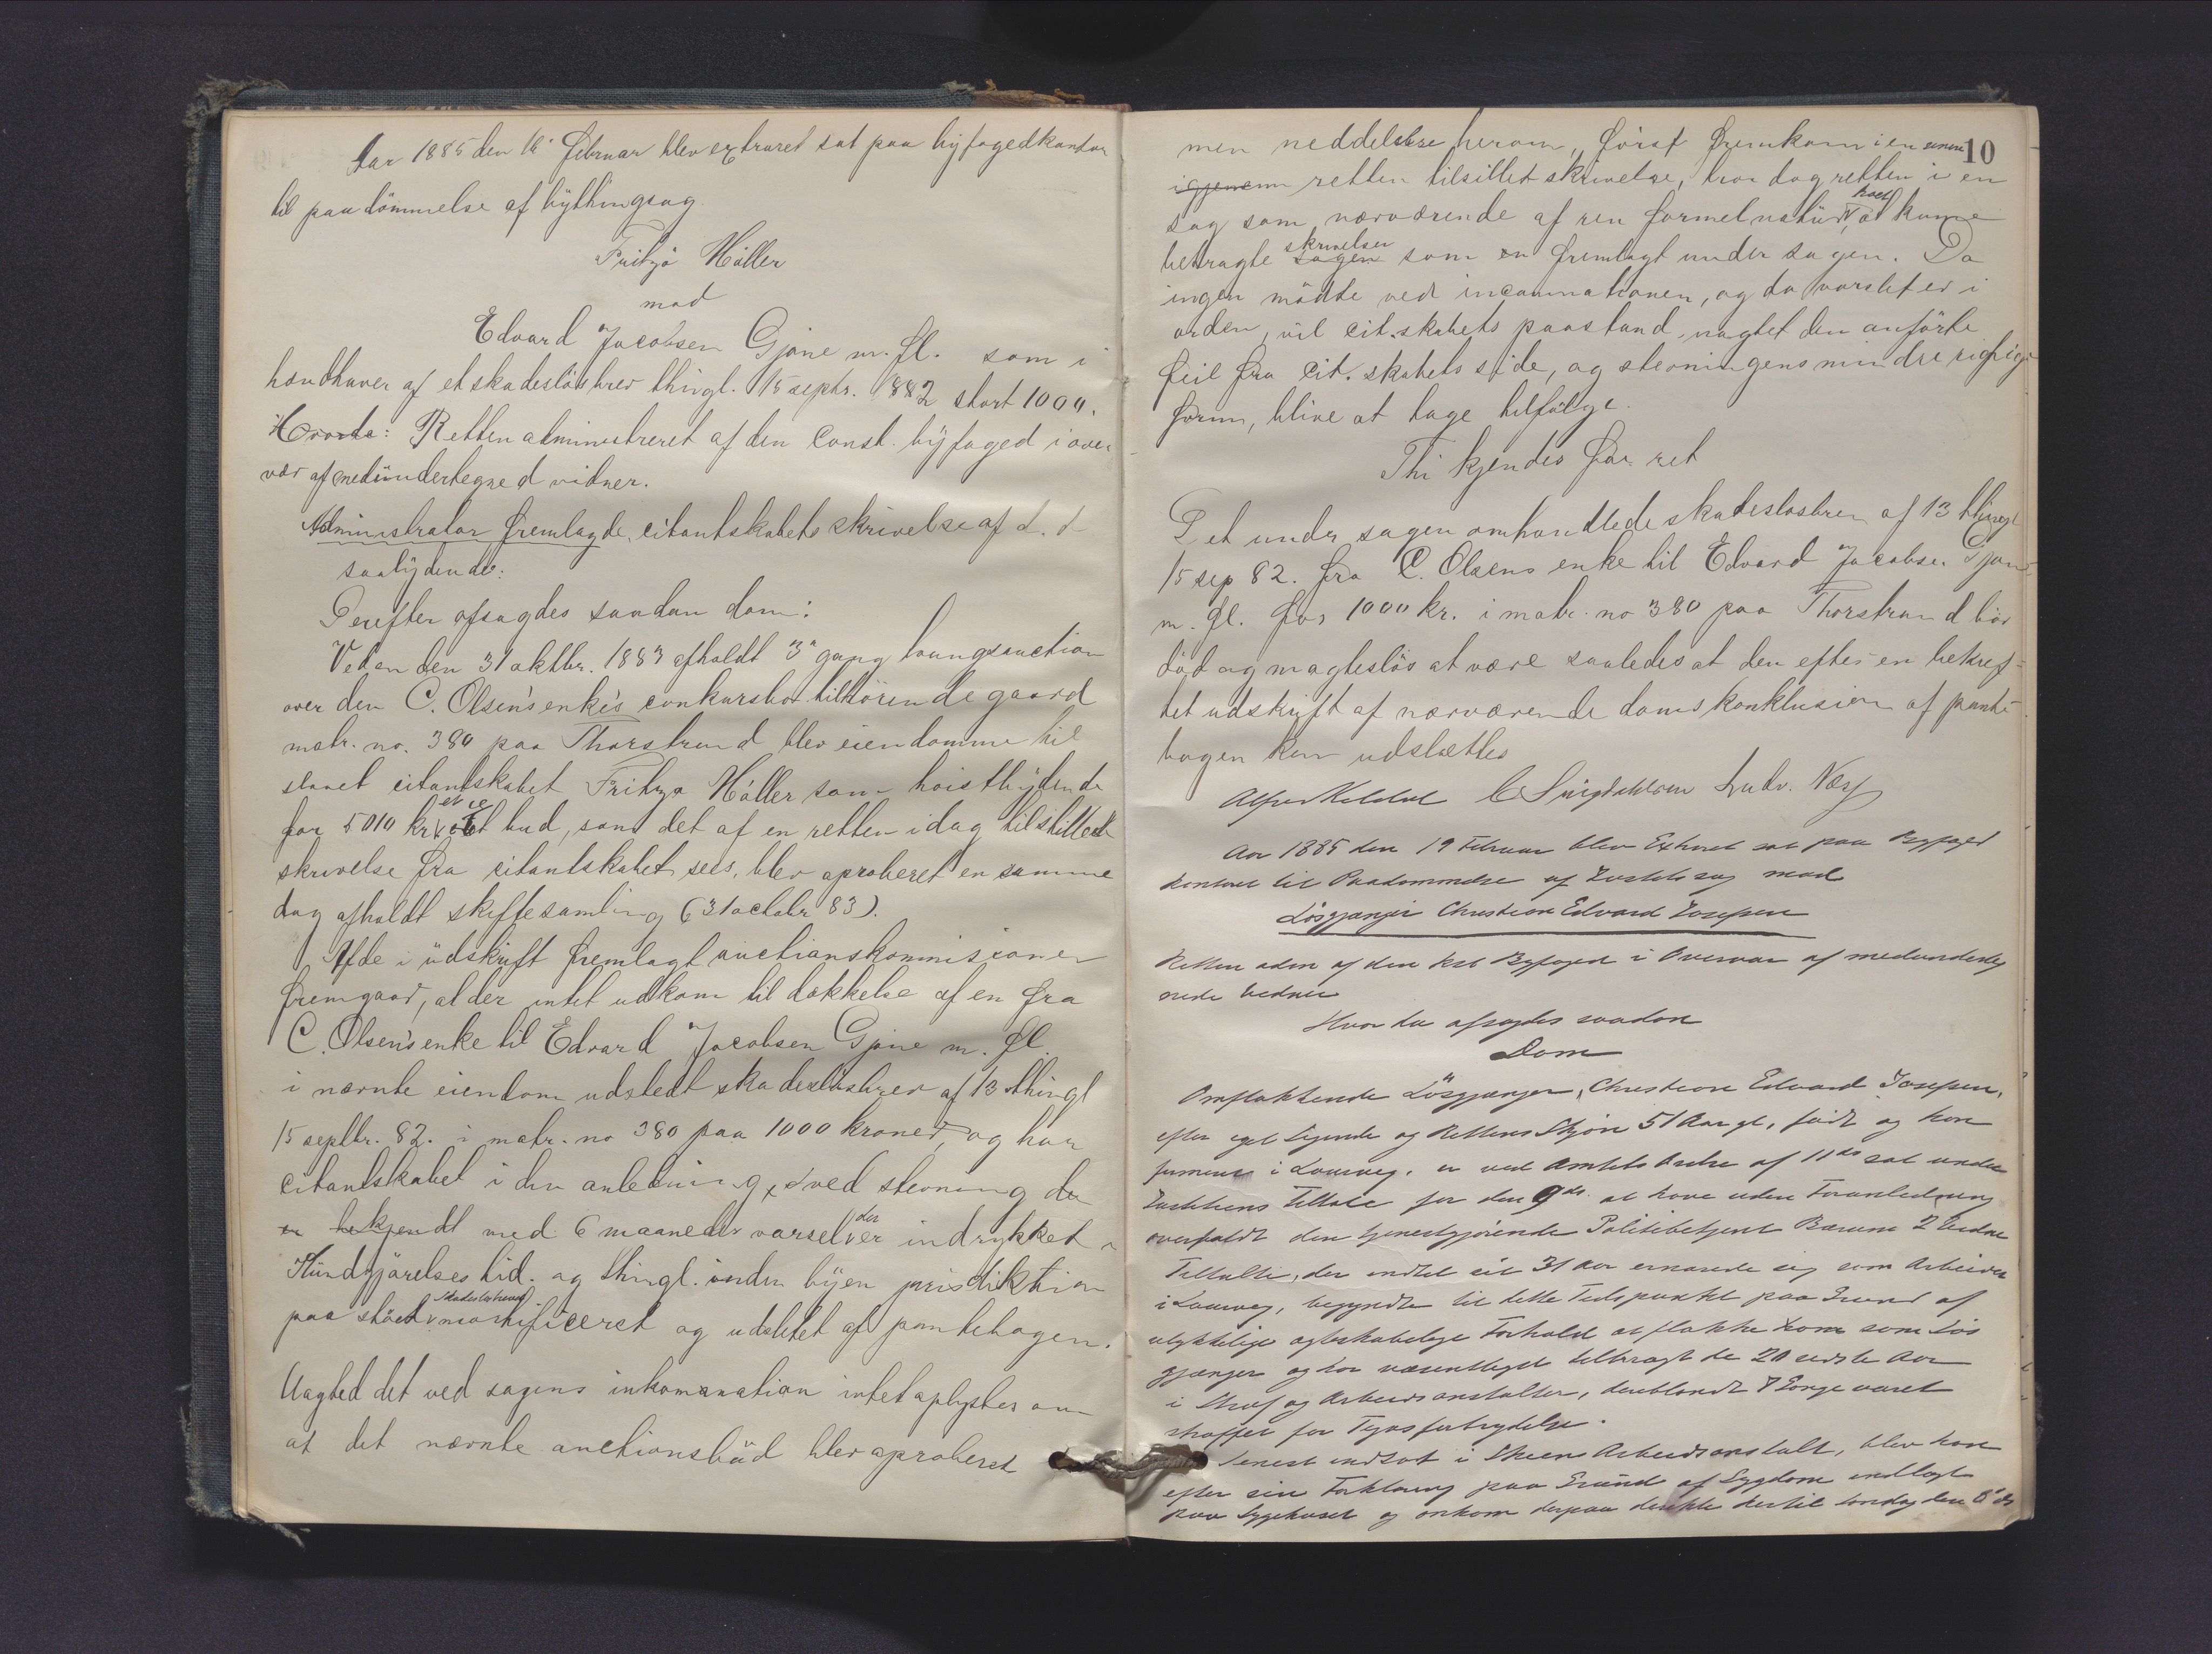 Aar 1885 den 18 februar blev extraret sat paa byfogedkontor
til paadömmelse af bythingsag
Fritzö Möller
mod
Edvard Jacobsen Gjone m. fl. som i
hændehaver af et skadeslösbrev thingl. 15 septr. 1882 stort 1000.
Retten administreret af den const. byfoged i over
vær af medundertegned vidner.
Administrator fremlagde citantskabets skrivelse af d. d
saalydende:
Derefter afsagdes saadan dom:
Ved en den 31 oktbr. 1883 afholdt 3die gang tvungsauction
over den C. Olsens enkes conkursbo tilhörende gaard
matr. no. 380 paa Thorstrand blev eiendomme til
slaaet citantskabet Fritzö Möller som höistbydende
for 5010 kr et bud, som det af en retten idag tilstillede
skrivelse fra citantskabet sees, blev aproberet en samme
dag afholdt skiftesamling (31 octobr 83).
Af de i udskrift fremlagt auctionskommisioner
fremgaar, at der intet udkom til dækkelse af en fra
C. Olsens enke til Edvard Jacobsen Gjone m. fl.
i nævnte eiendom udstedt skadeslösbrev af 13 thingl
15 septbr. 82. i matr. no 380 paa 1000 kroner, og har
citantskabet i den anledning, ved stevning der
er bekjendt med 6 maaneders varsel der er indrykket i
Kundgjörelses tid. og thingl. inden byen jurisdiktion
paa stået skadeslösbrevet mortificeret og udslettet af pantebogen.
Uagted det ved sagens inkomination intet oplystes om
at det nævnte auctionsbud blev aproberet
10
men meddelelse herom, först fremkom i en senere
igjennem retten tilstillet skrivelse, tror dog retten i en
sag som nærværende af ren formel natur, at kunne
betragte sagen skrivelsen som en fremlagt under sagen. Da
ingen mödte ved incaminationen, og da varslet er i
orden, vil cit.skabets paastand, uagtet den anförte
feil fra cit.skabets side, og stevningens mindre rigtige
form, blive at tage tilfölge.
Thi kjendes for ret
Det under sagen omhandlede skadeslosbrev af 13 thingl
15 sep 82. fra C. Olsens enke til Edvard Jacobsen Gjone
m. fl. for 1000 kr. i matr. no 380 paa Thorstrand bör
död og magteslös at være saaledes at den efter en bekref-
tet udskrift af nærværende doms konklusion af pante-
bogen kan udslættes
Aar 1885 den 19 Februar blev Extraret sat paa Byfoged
kontoret til Paadömmelse af Justitssag mod
Lösgjænger Christian Edvard Josefsen
Retten adm af den kst Byfoged i Overvær af medunderteg
nede Vidner
Hvor da afsagdes saadan
Dom
Omflakkende Lösgjænger, Christian Edvard Josefsen,
efter eget Sigende og Rettens Skjön 51 Aar gl, födt og kon
fimeret i Laurvig, er ved Amtets Ordre af 11te ds sat under
Justitiens Tiltale for den 9 ds. at have uden Foranledning
overfaldt den tjenestgjörende Politibetjent
Tiltalte, der indtil sit 31 Aar ernærede sig som Arbeider
i Laurvig, begyndte til dette Tidspunkt paa Grund af
ulykkelige ægteskabelige Forhold at flakke om som Lös
gjænger og har væsentligst tilbragt de 20 sidste Aar
i Straf og Arbeidsanstalter, deriblandt 8 Gange været
straffet for Tyvsforbrydelse.
Senest indsat i Skiens Arbeidsanstalt, blev han
efter sin Forklaring paa Grund af Sygdom indlagt
paa Sygehuset og ankom derpaa hertil söndag den 8 ds